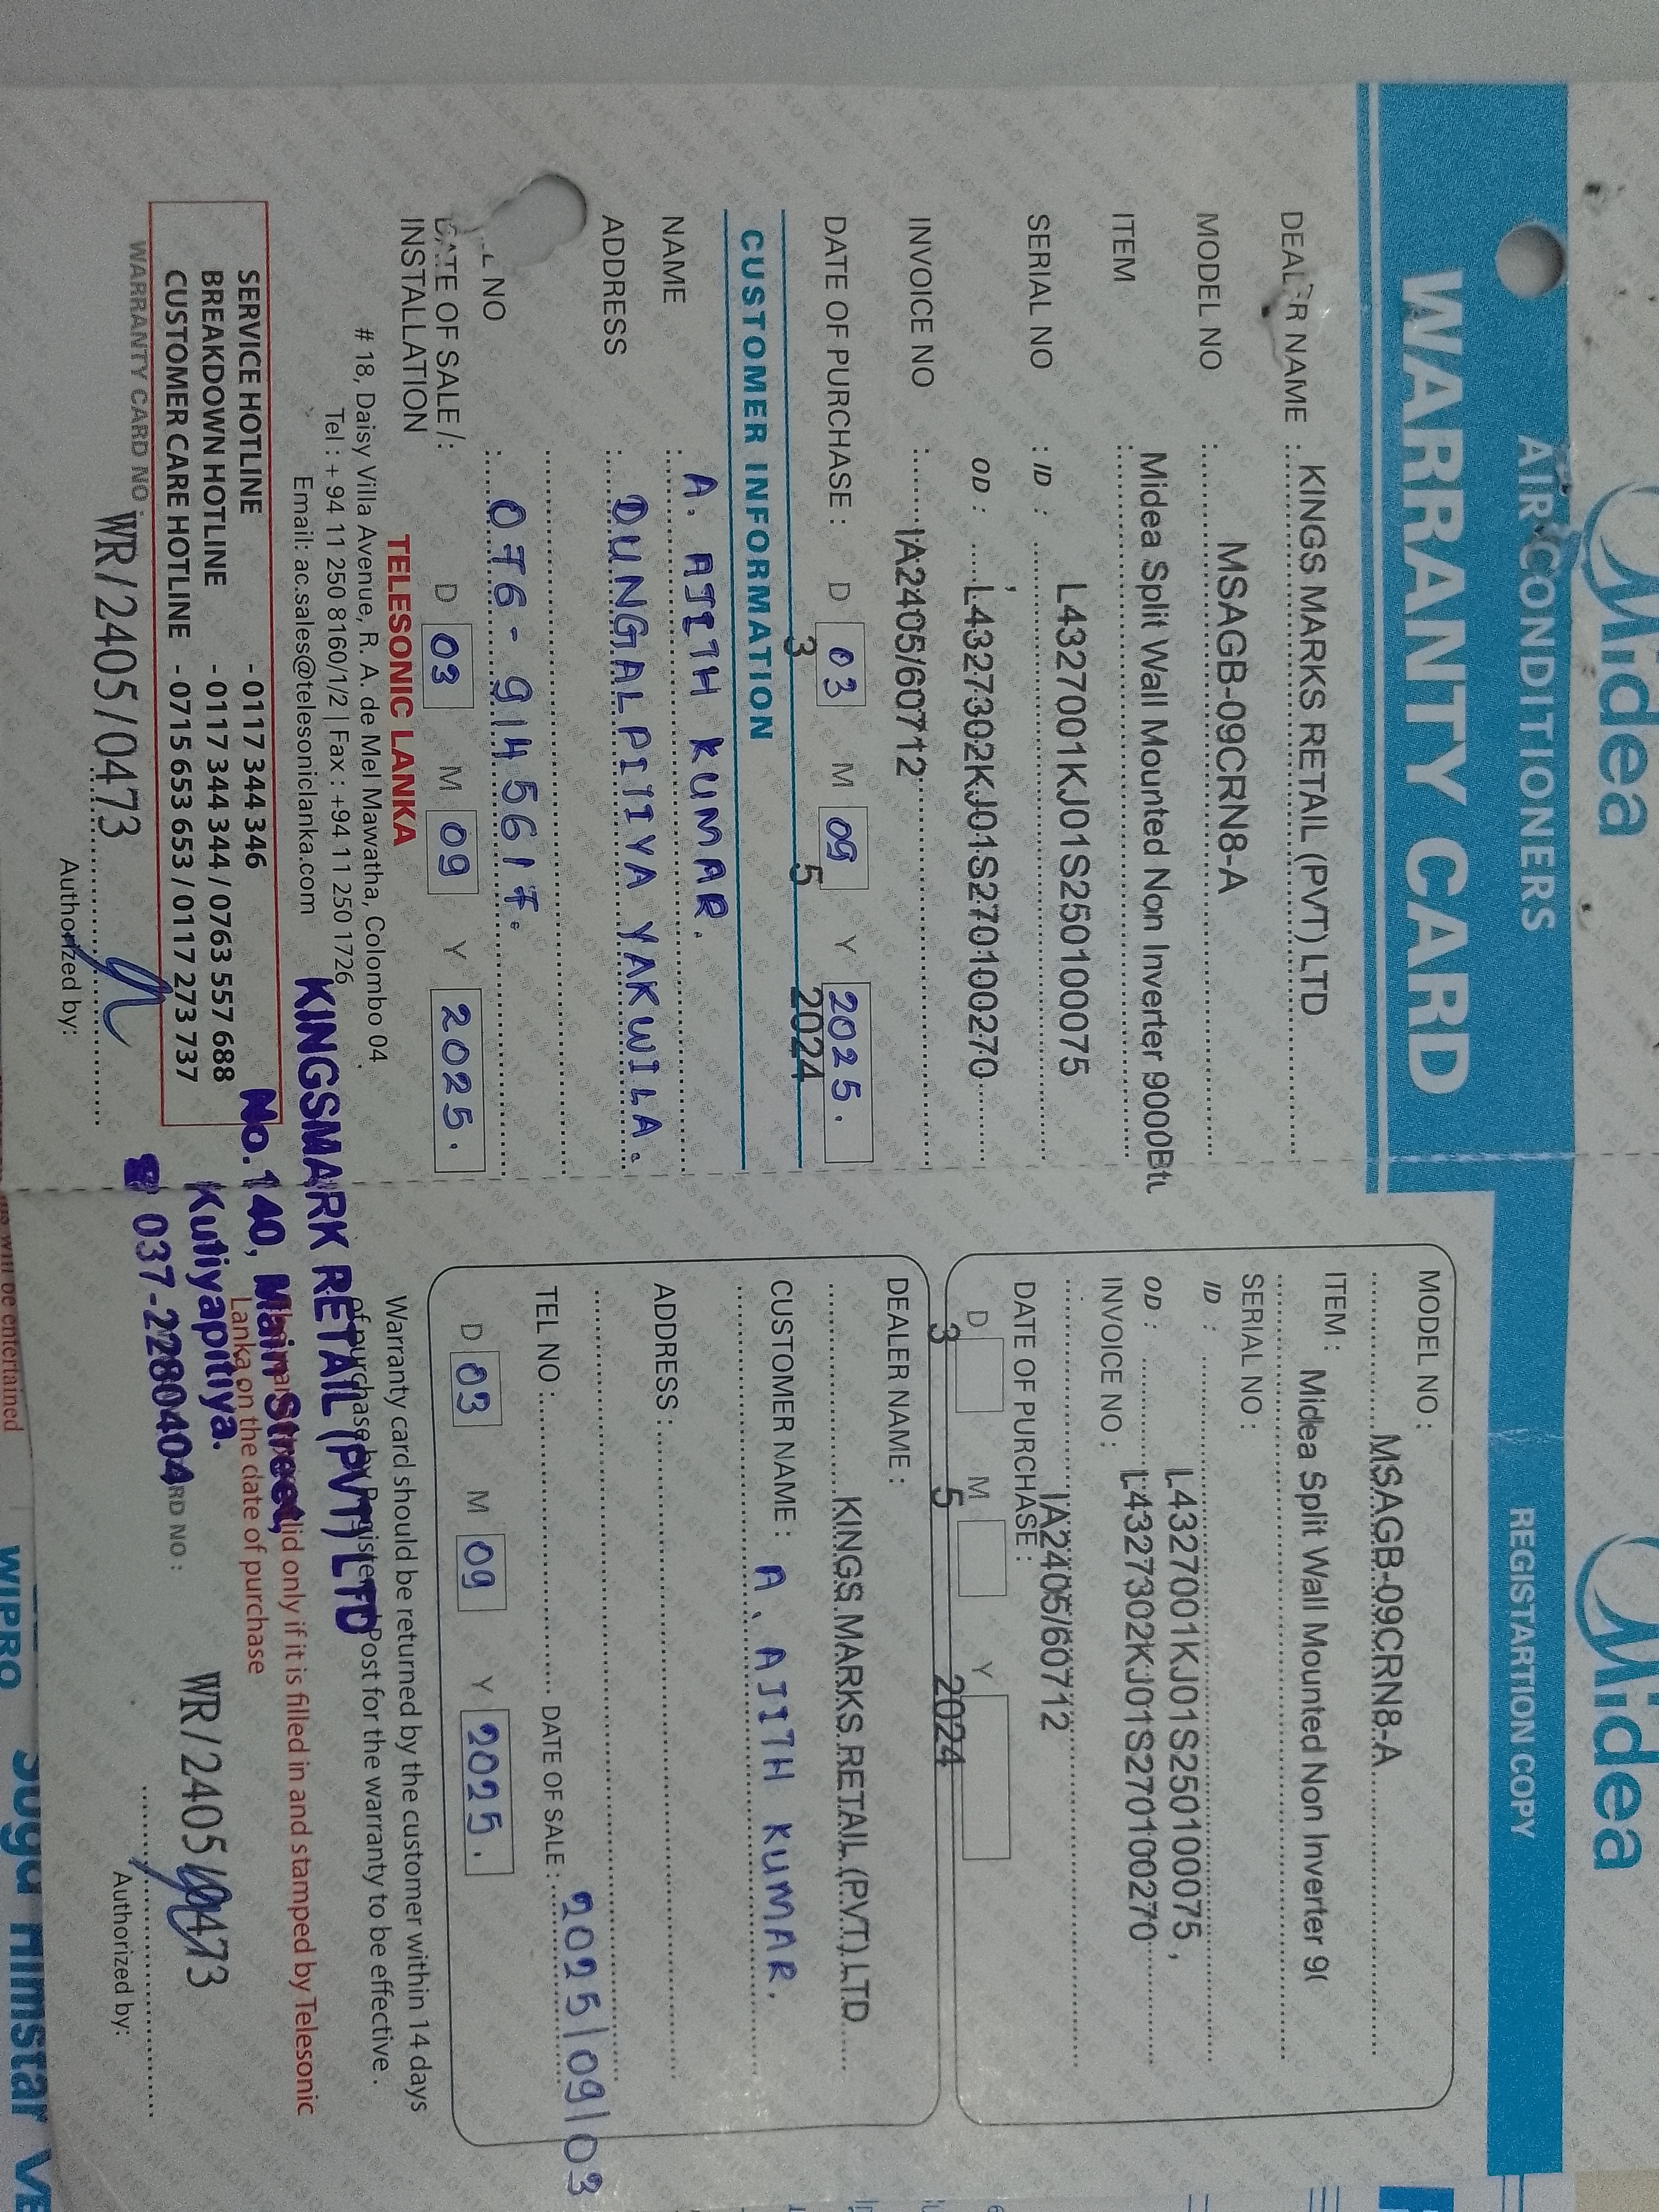 Midea
AIR CONDITIONERS
WARRANTY CARD
DEALER NAME : KINGS MARKS RETAIL (PVT) LTD
MODEL NO : MSAGB-09CRN8-A
ITEM : Midea Split Wall Mounted Non Inverter 9000Btu
SERIAL NO : ID : L4327001KJ01S250100075
OD : L4327302KJ01S270100270
INVOICE NO : IA2405/60712
DATE OF PURCHASE : D 03 M 09 Y 2025.
3 5 2024
CUSTOMER INFORMATION
NAME : A. AJITH KUMAR.
ADDRESS : DUNGALPITIYA YAKWILA.
NO : 076-9145617.
DATE OF SALE /: D 03 M 09 Y 2025.
INSTALLATION
TELESONIC LANKA
# 18, Daisy Villa Avenue, R. A. de Mel Mawatha, Colombo 04.
Tel : + 94 11 250 8160/1/2 | Fax : +94 11 250 1726
Email: ac.sales@telesoniclanka.com
SERVICE HOTLINE - 0117 344 346
BREAKDOWN HOTLINE - 0117 344 344 / 0763 557 688
CUSTOMER CARE HOTLINE - 0715 653 653 / 0117 273 737
WARRANTY CARD NO : WR/2405/0473
Authorized by:
KINGSMARK RETAIL (PVT) LTD
No.140, Main Street,
Kuliyapitiya.
☎ 037-2280404
Midea
REGISTARTION COPY
MODEL NO :
MSAGB-09CRN8-A
ITEM : Midea Split Wall Mounted Non Inverter 9
SERIAL NO :
ID : L4327001KJ01S250100075 ,
OD : L4327302KJ01S270100270
INVOICE NO :
IA2405/60712
DATE OF PURCHASE :
D M Y
3 5 2024
DEALER NAME :
KINGS MARKS RETAIL (PVT) LTD
CUSTOMER NAME : A. AJITH KUMAR.
ADDRESS :
TEL NO : DATE OF SALE : 2025/09/03
D 03 M 09 Y 2025.
Warranty card should be returned by the customer within 14 days
of purchase by Post for the warranty to be effective.
only if it is filled in and stamped by Telesonic
Lanka on the date of purchase
RD NO : WR/2405/0473
Authorized by:
will be entertained
WIPRO